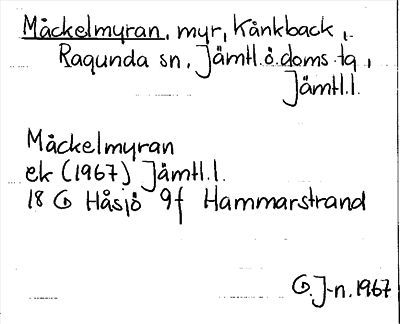 Måckelmyran, myr, Kånkback,
Ragunda sn, Jämtl.ö.doms.tg,
Jämtl.l.
Måckelmyran
ek (1967) Jämtl.l.
18 G Håsjö 9f Hammarstrand
G.J-n.1967